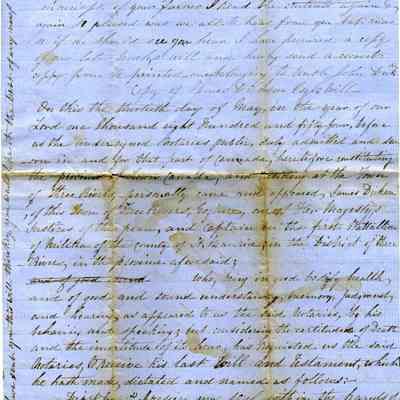 of your
again it pleased was we all to hear from you
as if we should see you here I have procured a copy
of our last will and hereby send a correct
copy from the
Copy of James Dickson Esqrs Will
On this the thirtieth day of May, in the year of our
Lord one thousand eight Hundred and fifty four, before
us the Undersigned Notaries public, duly admitted and
sworn in and for that part of Canada, heretofore constituting
the province of Lower Canada, and residing at the Town
of Three Rivers, personally came and appeared, James Dickson
of this Town of Three Rivers, Esquire, one of Her Majesty's
Justices of the peace, and Captain in the first Battalion
of Militia of the county of St Maurice, in the District of Three
Rivers, in the province aforesaid;
and of good mind who, being in good bodily health
and of good and sound understanding, memory, judgment,
and hearing, as appeared to us the said Notaries, by his
behavior and speaking; but considering the certitude of Death
and the incertitude of its hour, has requested us the said
Notaries, to receive his last Will and Testament, which
he hath made, dictated and named as follows:
my soul into the hands of